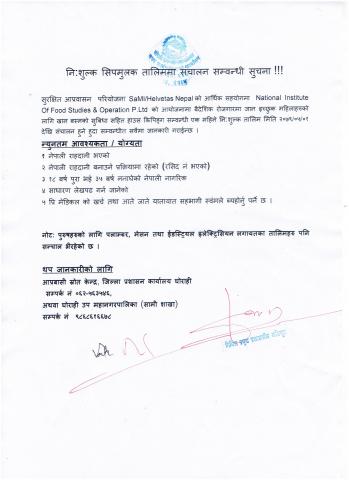 नि:शुल्क सिपमुलक तालिममा संचालन सम्वन्धी सुचना !!!
सुरक्षित आप्रवासन परियोजना SaMi/Helvetas Nepal को आर्थिक सहयोगमा National Institute
Of Food Studies & Operation P.Ltd को आयोजनामा बैदेशिक रोजगारमा जान इच्छुक महिलाहरुको
लागि खान बस्नको सुबिधा सहित हाउस किपिङ्ग सम्वन्धी एक महिने नि:शुल्क तालिम मिति २०७६/०५/०१
देखि संचालन हुने हुदा सम्वन्धीत सबैमा जानकारी गराईन्छ ।
न्युनतम आवश्यकता / योग्यता
१ नेपाली राहदानी भएको
२ नेपाली राहदानी बनाउने प्रक्रियामा रहेको (रसिद नं भएको)
३ १८ बर्ष पुरा भई ३५ बर्ष ननाघेको नेपाली नागरिक
४ साधारण लेखपढ गर्न जानेको
५ प्रि मेडिकल को खर्च तथा आते जाते यातायात सहभागी स्वंमले ब्यहोर्नु पर्ने छ ।
नोट: पुरुषहरुको लागि पलाम्बर, मेसन तथा ईडस्ट्रियल इलेक्ट्रिसियन लगायतका तालिमहरु पनि
सन्चाल भैरहेको छ ।
थप जानकारीको लागि
आप्रबासी स्रोत केन्द्र, जिल्ला प्रशासन कार्यालय घोराही
सम्पर्क नं ०८२-५६३५४६,
अथवा घोराही उप महानगरपालिका (सामी शाखा)
सम्पर्क नं ९८६८६१६६७८